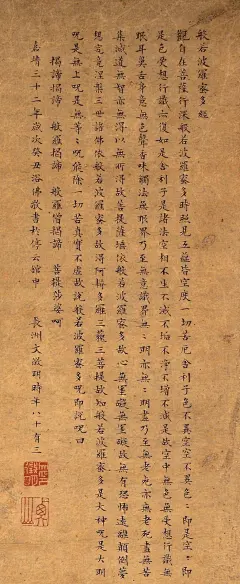 般若波羅蜜多經
觀自在菩薩行深般若波羅蜜多時照見五蘊皆空度一切苦厄舍利子色不異空空不異色〻即是空〻即
是色受想行識亦復如是舍利子是諸法空相不生不滅不垢不淨不增不減是故空中無色無受想行識無
眼耳鼻舌身意無色聲香味觸法無眼界乃至無意識界無〻明亦無〻明盡乃至無老死亦無老死盡無苦
集滅道無智亦無得以無所得故菩提薩埵依般若波羅蜜多故心無罣礙無罣礙故無有恐怖遠離顛倒夢
想究竟涅槃三世諸佛依般若波羅蜜多故得阿耨多羅三藐三菩提故知般若波羅蜜多是大神呪是大明
呪是無上呪是無等〻呪能除一切苦真實不虛故說般若波羅蜜多呪即說呪曰
揭諦揭諦 般羅揭諦 般羅僧揭諦 菩提莎婆呵
嘉靖三十二年歲次癸丑浴佛敬書於停雲館中 長洲文徵明時年八十有三